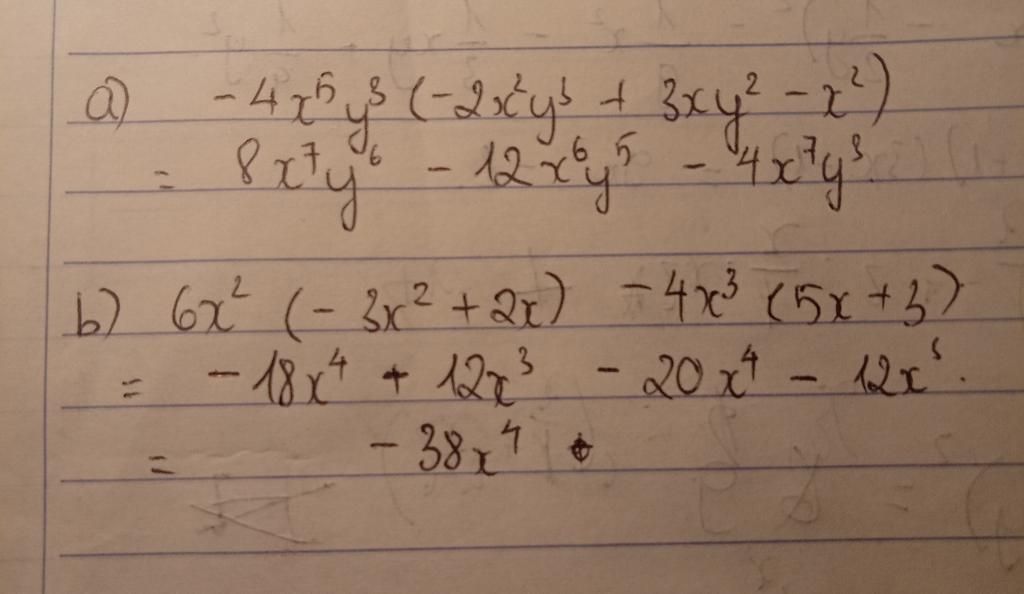 a) -4x⁵y³ (-2x²y³ + 3xy² - x²)
= 8x⁷y⁶ - 12x⁶y⁵ - 4x⁷y³.
b) 6x² (-3x² + 2x) - 4x³ (5x + 3)
= -18x⁴ + 12x³ - 20x⁴ - 12x³.
= -38x⁴